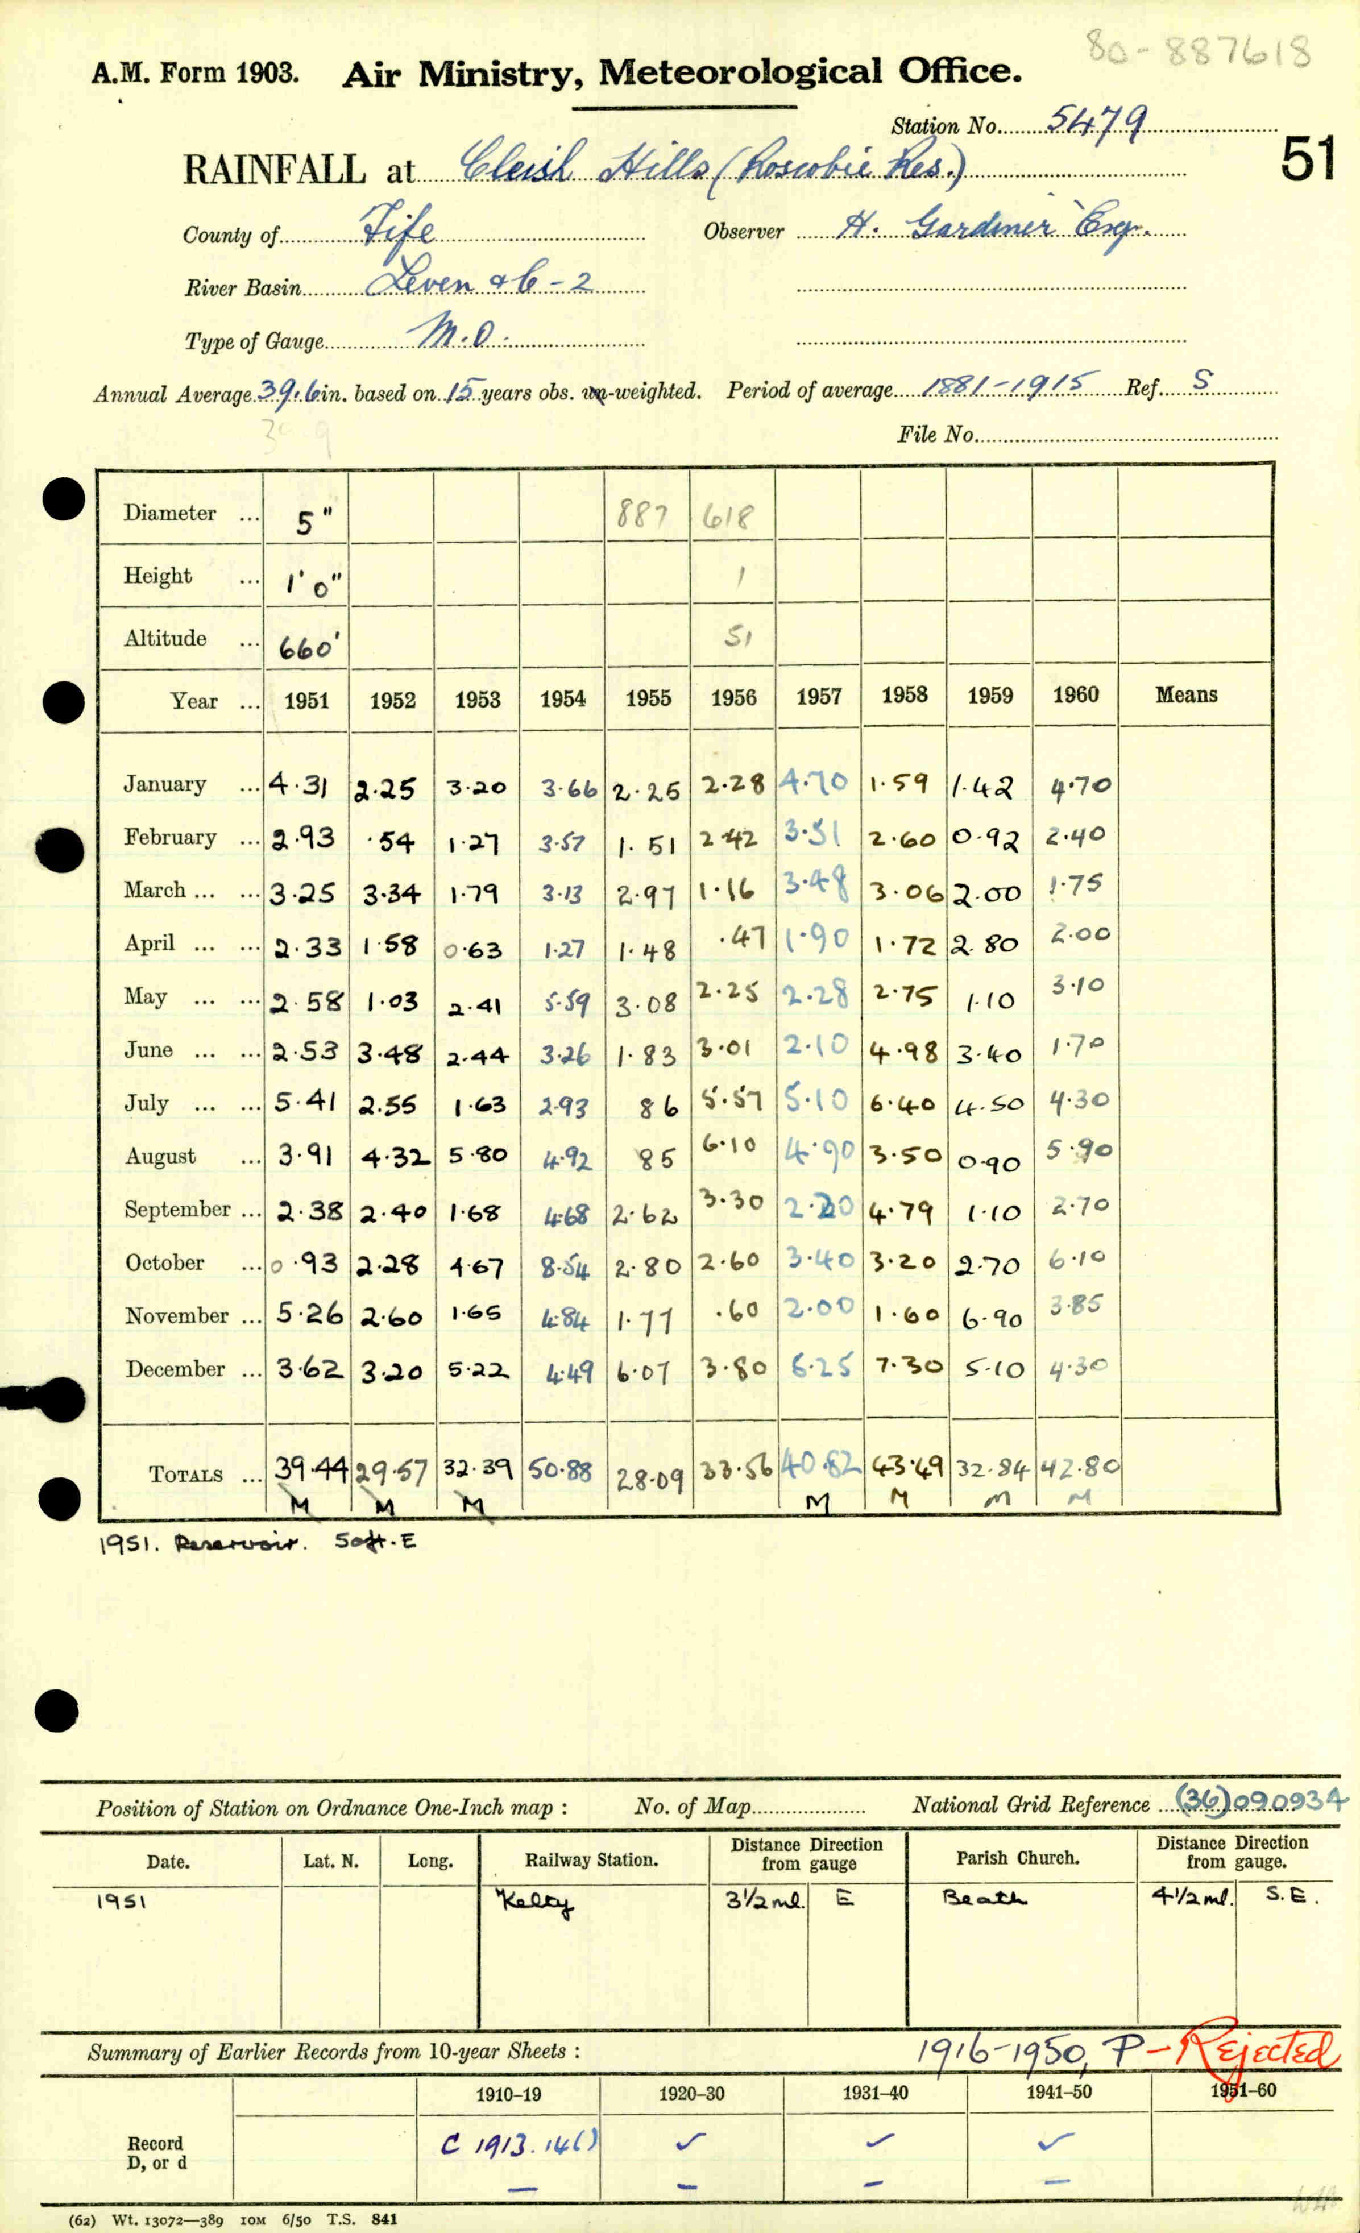 80-887618
A.M. Form 1903. Air Ministry, Meteorological Office.
Station No. 5479
51
RAINFALL at Cleish Hills (Roscobie Res.)
County of Fife Observer H. Gardiner Esq.
River Basin Leven &c - 2
Type of Gauge M.O.
Annual Average 39.6 in. based on 15 years obs. un-weighted. Period of average 1881-1915 Ref. S
File No.
Diameter ... 5" 887 618
Height ... 1' 0" 1
Altitude ... 660' 51
Year ... 1951 1952 1953 1954 1955 1956 1957 1958 1959 1960 Means
January ... 4.31 2.25 3.20 3.66 2.25 2.28 4.70 1.59 1.42 4.70
February ... 2.93 .54 1.27 3.57 1.51 2.42 3.51 2.60 0.92 2.40
March ... ... 3.25 3.34 1.79 3.13 2.97 1.16 3.48 3.06 2.00 1.75
April ... ... 2.33 1.58 0.63 1.27 1.48 .47 1.90 1.72 2.80 2.00
May ... ... 2.58 1.03 2.41 5.59 3.08 2.25 2.28 2.75 1.10 3.10
June ... ... 2.53 3.48 2.44 3.26 1.83 3.01 2.10 4.98 3.40 1.70
July ... ... 5.41 2.55 1.63 2.93 86 5.57 5.10 6.40 4.50 4.30
August ... 3.91 4.32 5.80 4.92 85 6.10 4.90 3.50 0.90 5.90
September ... 2.38 2.40 1.68 4.68 2.62 3.30 2.20 4.79 1.10 2.70
October ... 0.93 2.28 4.67 8.54 2.80 2.60 3.40 3.20 2.70 6.10
November ... 5.26 2.60 1.65 4.84 1.77 .60 2.00 1.60 6.90 3.85
December ... 3.62 3.20 5.22 4.49 6.07 3.80 6.25 7.30 5.10 4.30
TOTALS ... 39.44 29.57 32.39 50.88 28.09 33.56 40.82 43.49 32.84 42.80
M M M M M M M
1951. Reservoir. 50ft. E
Position of Station on Ordnance One-Inch map : No. of Map National Grid Reference (36)090934
Date. Lat. N. Long. Railway Station. Distance Direction from gauge Parish Church. Distance Direction from gauge.
1951 Kelty 3½ ml. E Beath 4½ ml. S.E.
Summary of Earlier Records from 10-year Sheets : 1916-1950, P - Rejected
1910-19 1920-30 1931-40 1941-50 1951-60
Record C 1913. 14() ✓ ✓ ✓
D, or d – – – –
(62) Wt. 13072—389 10M 6/50 T.S. 841